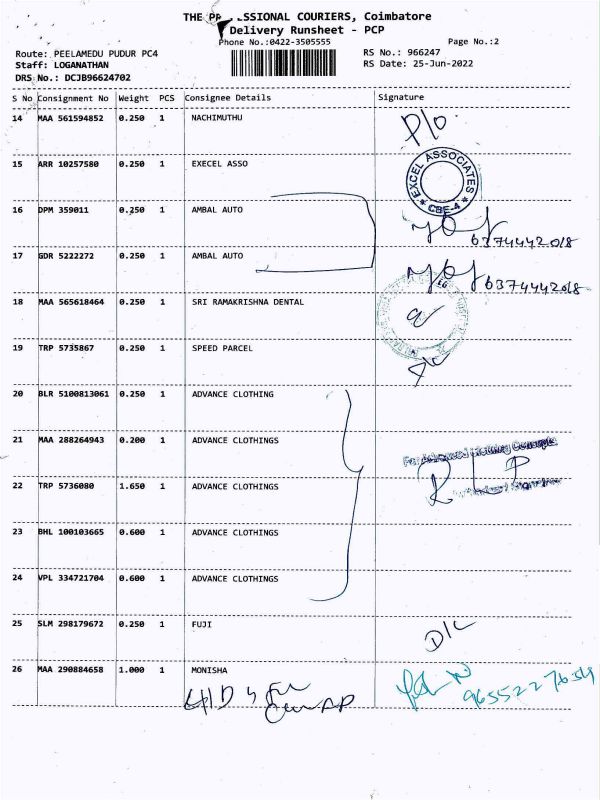 THE PR SSIONAL COURIERS, Coimbatore
Delivery Runsheet - PCP
Phone No.:0422-3505555
Page No.:2
Route: PEELAMEDU PUDUR PC4
RS No.: 966247
Staff: LOGANATHAN
RS Date: 25-Jun-2022
DRS No.: DCJB96624702
S No Consignment No Weight PCS Consignee Details Signature
14 MAA 561594852 0.250 1 NACHIMUTHU
15 ARR 10257580 0.250 1 EXECEL ASSO
EXCEL ASSOCIATES
* CBE-4 *
16 DPM 359011 0.250 1 AMBAL AUTO
6374442018
17 GDR 5222272 0.250 1 AMBAL AUTO
6374442018
18 MAA 565618464 0.250 1 SRI RAMAKRISHNA DENTAL
19 TRP 5735867 0.250 1 SPEED PARCEL
20 BLR 5100813061 0.250 1 ADVANCE CLOTHING
21 MAA 288264943 0.200 1 ADVANCE CLOTHINGS
22 TRP 5736080 1.650 1 ADVANCE CLOTHINGS
23 BHL 100103665 0.600 1 ADVANCE CLOTHINGS
24 VPL 334721704 0.600 1 ADVANCE CLOTHINGS
25 SLM 298179672 0.250 1 FUJI
D/L
26 MAA 290884658 1.000 1 MONISHA
9655227654